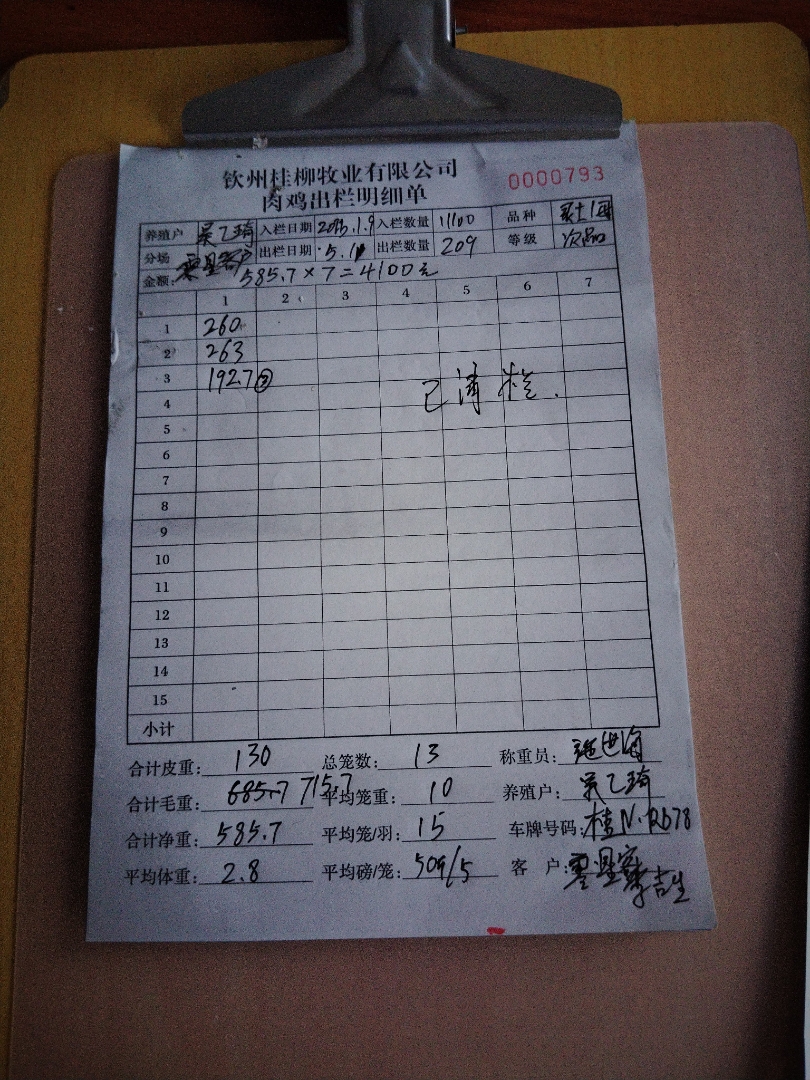 钦州桂柳牧业有限公司
肉鸡出栏明细单
0000793
养殖户 吴乙琦 入栏日期 1.9 入栏数量 11100 品种
分场 零星客户 出栏日期 5.1 出栏数量 209 等级 次品
金额: 585.7×7=4100元
1 2 3 4 5 6 7
1 260
2 263
3 192.7②
已清栏.
4
5
6
7
8
9
10
11
12
13
14
15
小计
合计皮重: 130 总笼数: 13 称重员:
合计毛重: 685.7 715.7 平均笼重: 10 养殖户: 吴乙琦
合计净重: 585.7 平均笼/羽: 15 车牌号码: 桂N·R678
平均体重: 2.8 平均磅/笼: 509/5 客 户: 零星客
李吉生